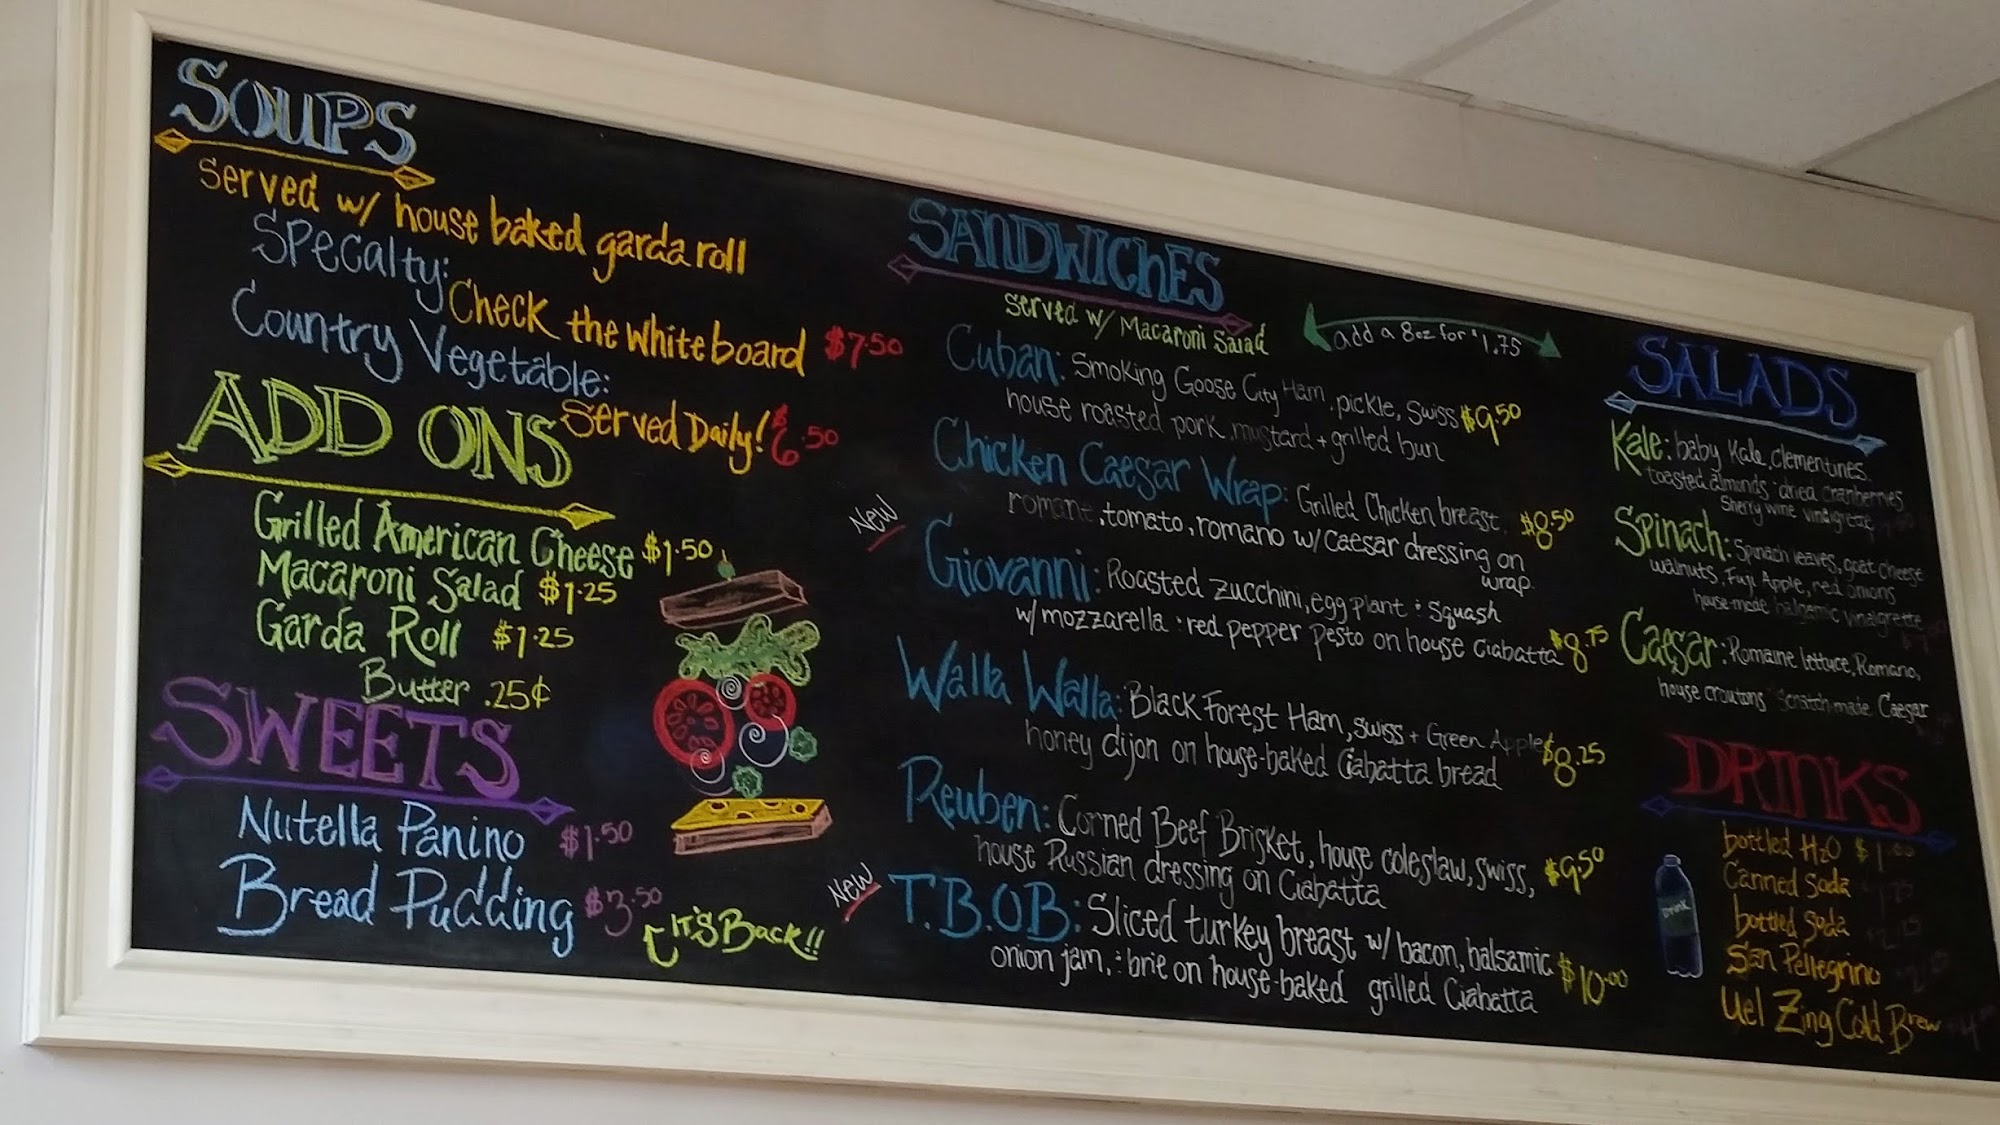 SOUPS
served w/ house baked garda roll
Specalty:
Check the white board $7.50
Country Vegetable:
Served Daily! $6.50
ADD ONS
Grilled American Cheese $1.50
Macaroni Salad $1.25
Garda Roll $1.25
Butter .25¢
SWEETS
Nutella Panino $1.50
Bread Pudding $3.50
IT'S BACK!!
SANDWICHES
served w/ Macaroni Salad
add a 8oz for $1.75
Cuban: Smoking Goose City Ham, pickle, swiss $9.50
house roasted pork, mustard + grilled bun
Chicken Caesar Wrap: Grilled Chicken breast, $8.50
romane, tomato, romano w/ Caesar dressing on
wrap.
New
Giovanni: Roasted zucchini, eggplant : squash
w/ mozzarella : red pepper pesto on house Ciabatta $8.75
Walla Walla: Black Forest Ham, swiss + Green Apple $8.25
honey dijon on house-baked Ciabatta bread
Reuben: Corned Beef Brisket, house coleslaw, swiss, $9.50
house Russian dressing on Ciabatta
New
T.B.O.B: Sliced turkey breast w/ bacon, balsamic
onion jam, : brie on house-baked grilled Ciabatta $10.00
SALADS
Kale: baby Kale, clementines,
toasted almonds : dried cranberries
Sherry wine vinaigrette
Spinach: Spinach leaves, goat cheese
walnuts, Fuji Apple, red onions
house-made balsamic vinaigrette
Caesar: Romaine lettuce, Romano,
house croutons Scratch-made Caesar
DRINKS
bottled H2O $1.00
Canned Soda
bottled Soda
San Pellegrino
Uel Zing Cold Brew
Drink